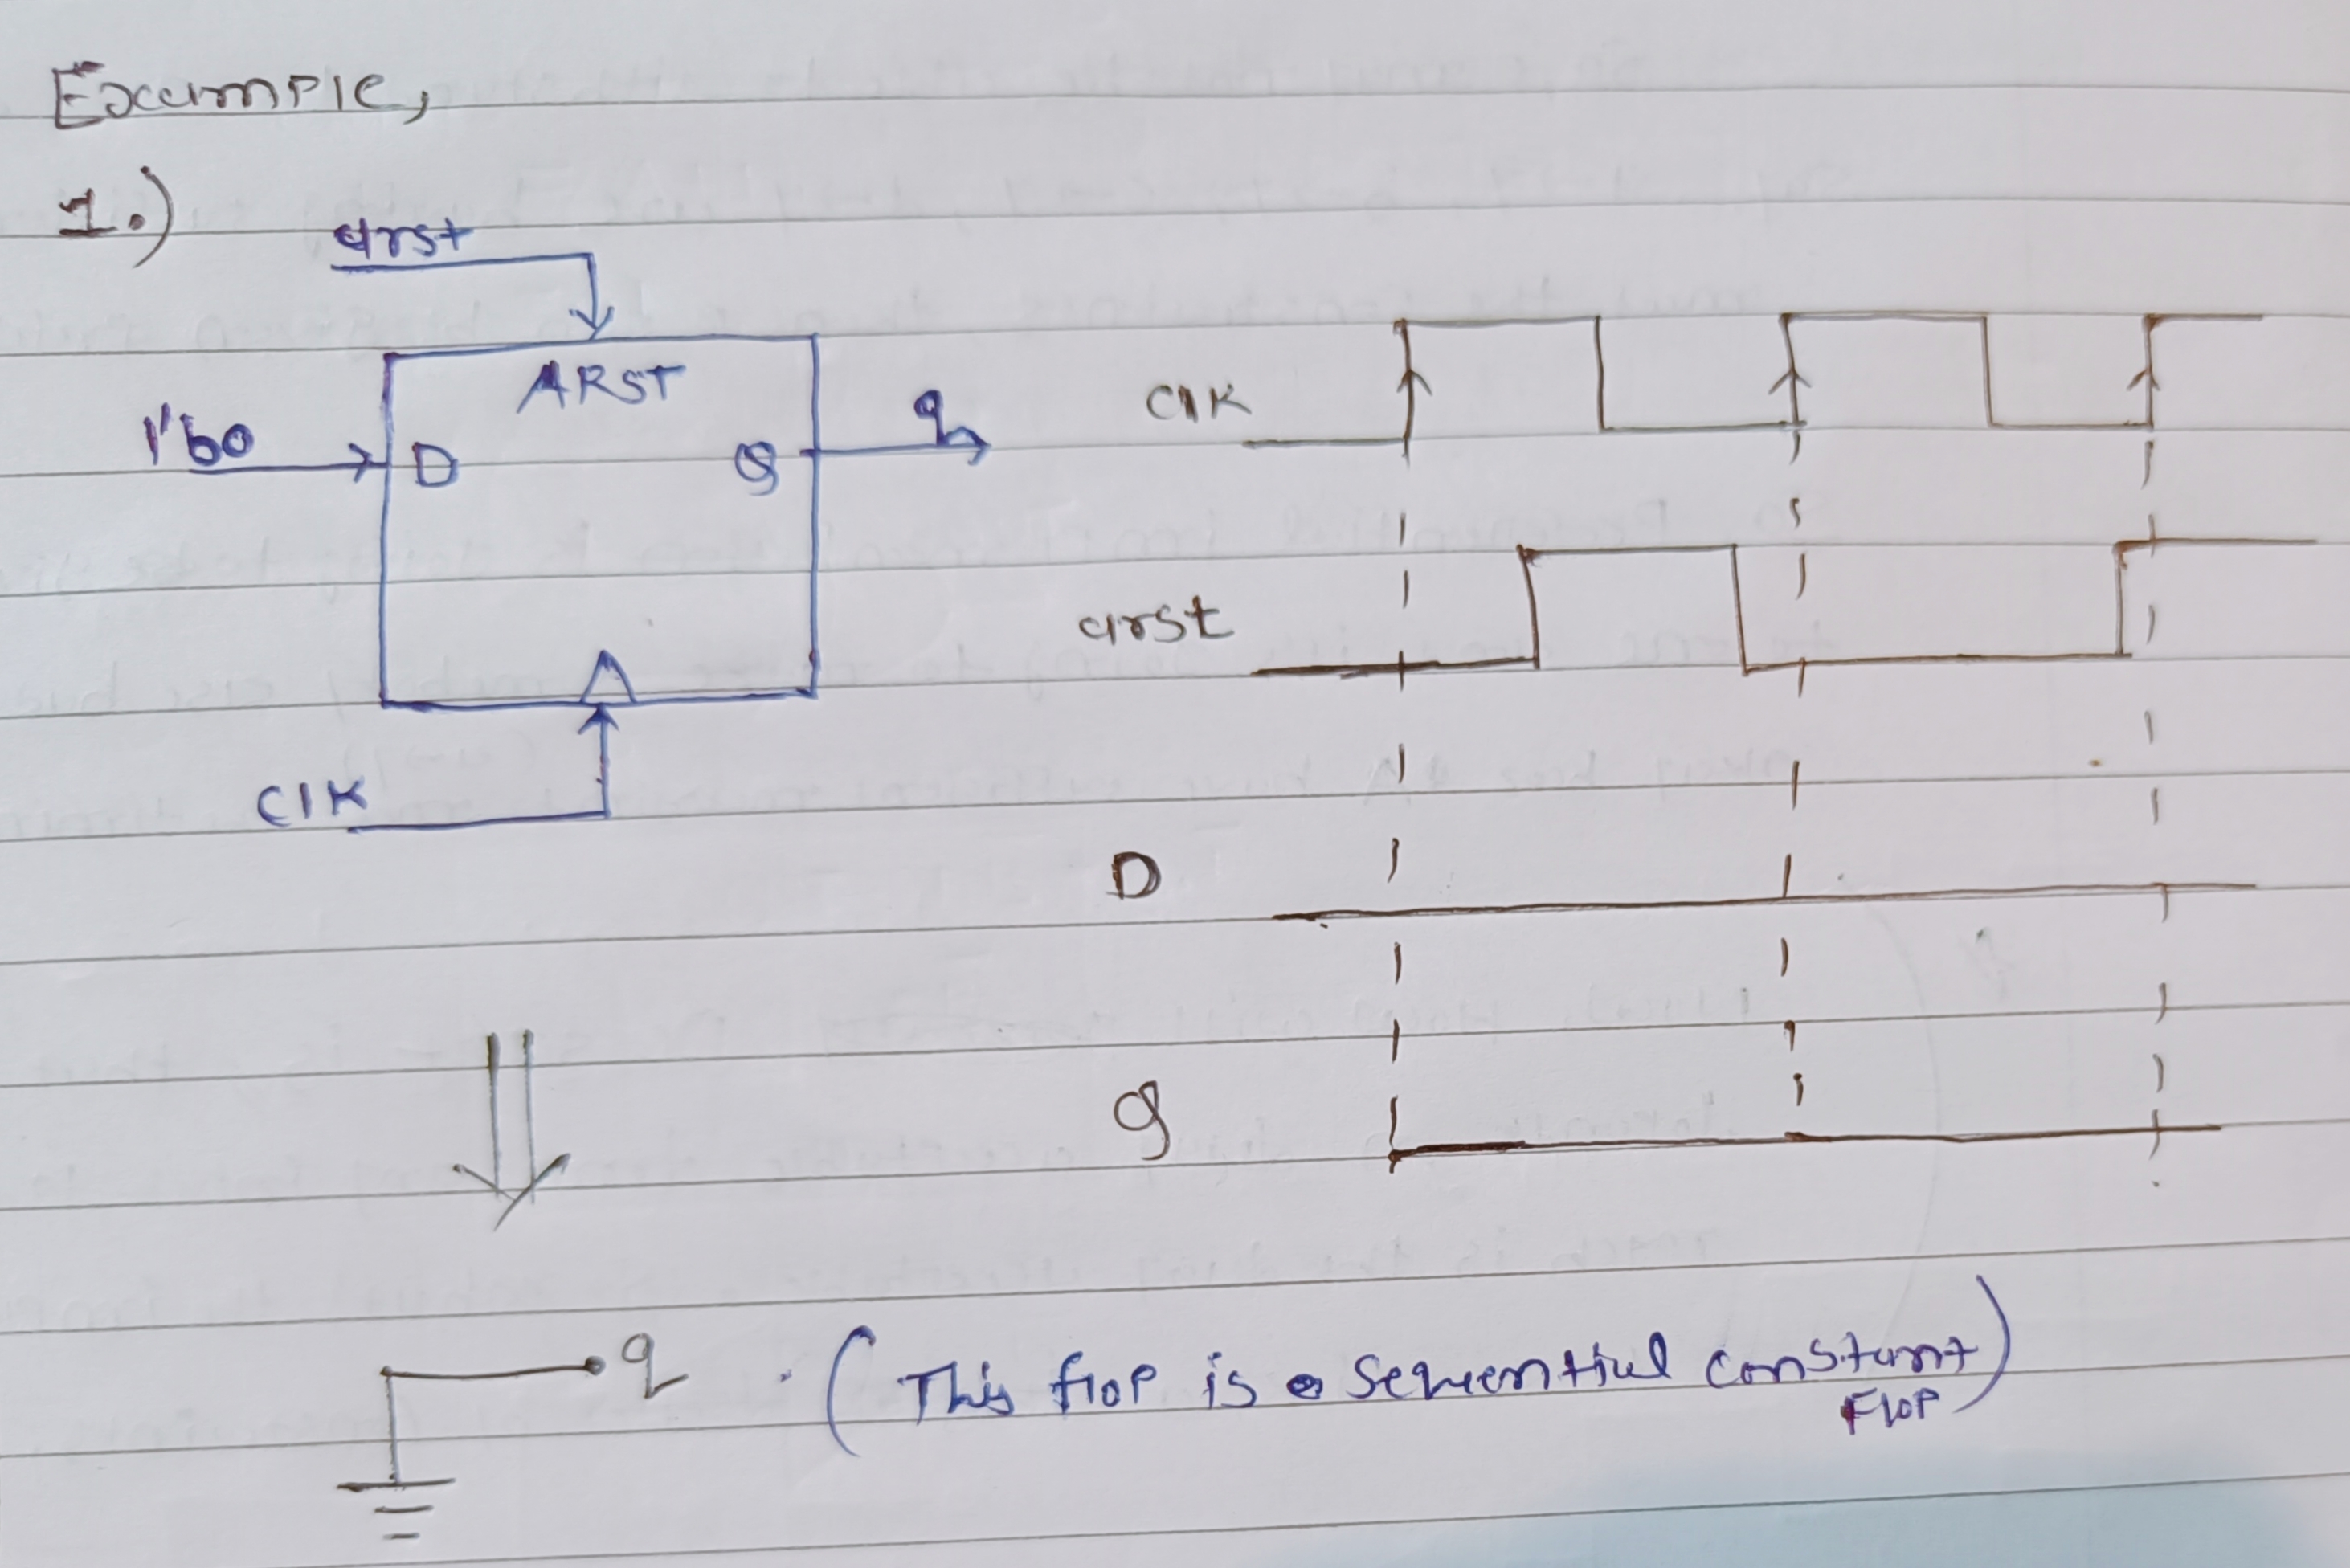 Example,
1.)
arst
ARST
1'b0
D
Q
q
clk
clk
arst
D
q
q
(This flop is a sequential constant
Flop)